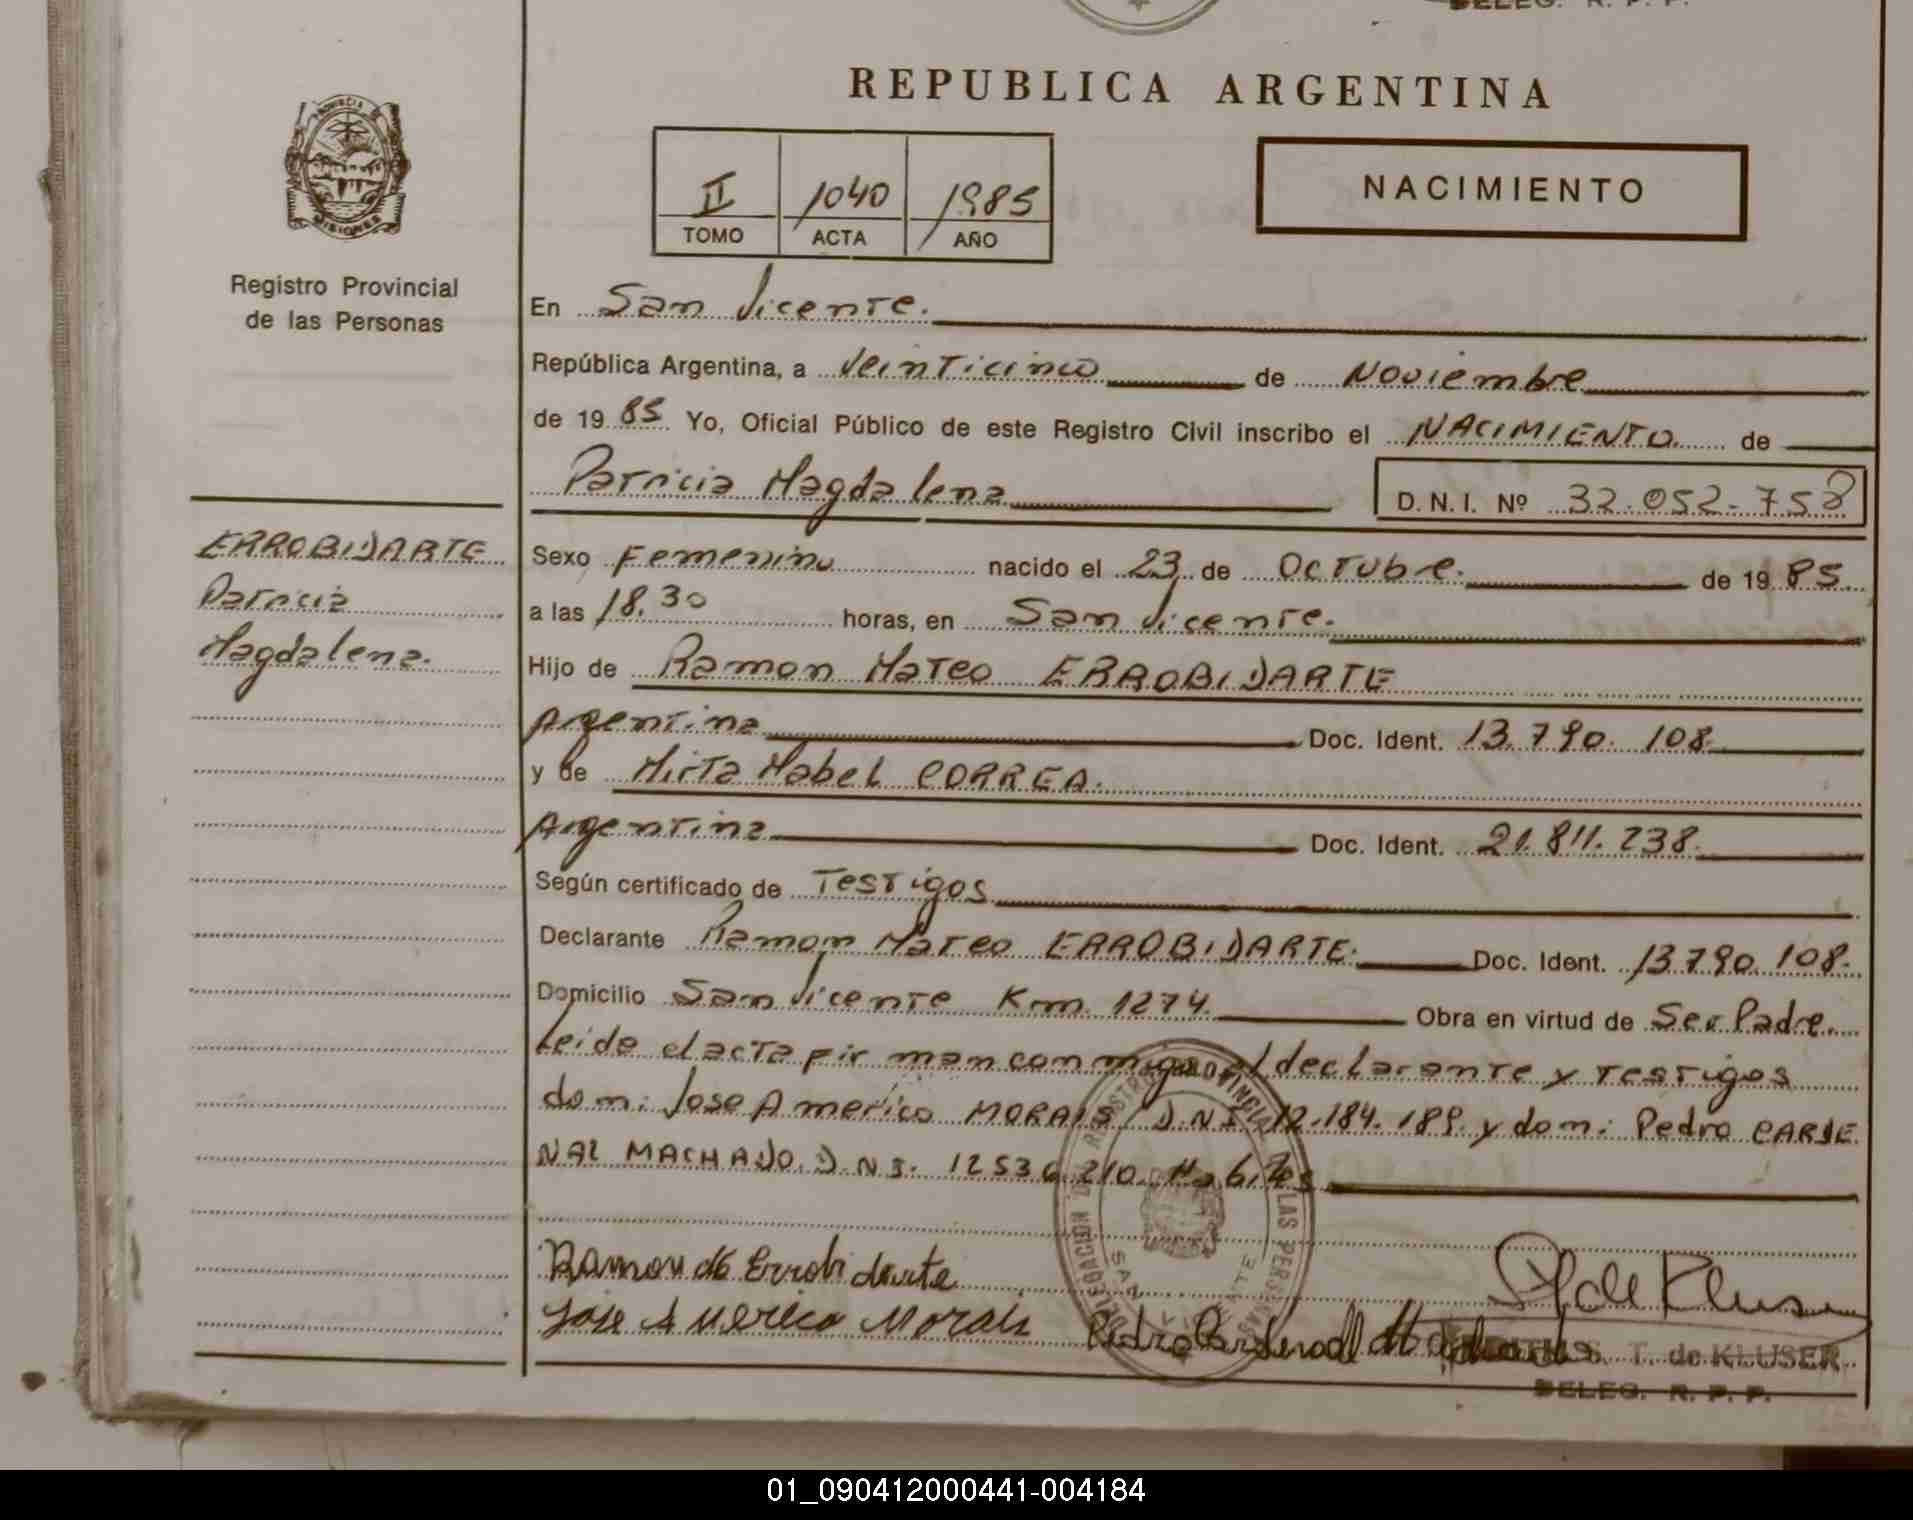 DELEG. R. P. P.
REPUBLICA ARGENTINA
PROVINCIA DE
MISIONES
II 1040 1985
TOMO ACTA AÑO
NACIMIENTO
Registro Provincial
de las Personas
En San Vicente.
República Argentina, a Veinticinco de Noviembre
de 1985 Yo, Oficial Público de este Registro Civil inscribo el NACIMIENTO de
Patricia Magdalena D.N.I. Nº 32.052.758
ERROBIDARTE
Patricia
Magdalena.
Sexo Femenino nacido el 23 de Octubre. de 1985.
a las 18.30 horas, en San Vicente.
Hijo de Ramon Mateo ERROBIDARTE
Argentina Doc. Ident. 13.790.108
y de Mirta Mabel CORREA.
Argentina Doc. Ident. 21.811.238.
Según certificado de Testigos
Declarante Ramon Mateo ERROBIDARTE. Doc. Ident. 13.790.108.
Domicilio San Vicente Km 1274. Obra en virtud de Ser Padre.
Leida el acta firman conmigo el declarante y testigos
don: Jose Americo MORAIS D.N.I. 12.184.189. y don: Pedro CARDE
NAL MACHADO. D.N.I. 12536.210. Habiles
DELEGACION DEL REGISTRO PROVINCIAL DE LAS PERSONAS
SAN VICENTE
Ramon Errobidarte
Jose Americo Morais Pedro Cardenal Machado
S. T. de KLUSER
DELEG. R. P. P.
01_090412000441-004184